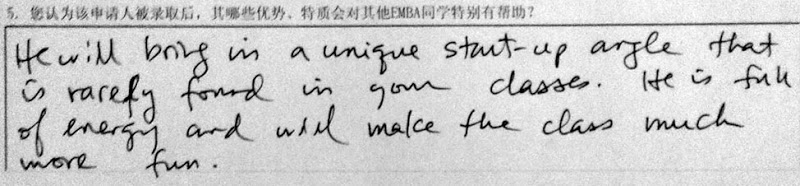 5. 您认为该申请人被录取后，其哪些优势、特质会对其他EMBA同学特别有帮助？
He will bring in a unique start-up angle that
is rarely found in your classes. He is full
of energy and will make the class much
more fun.